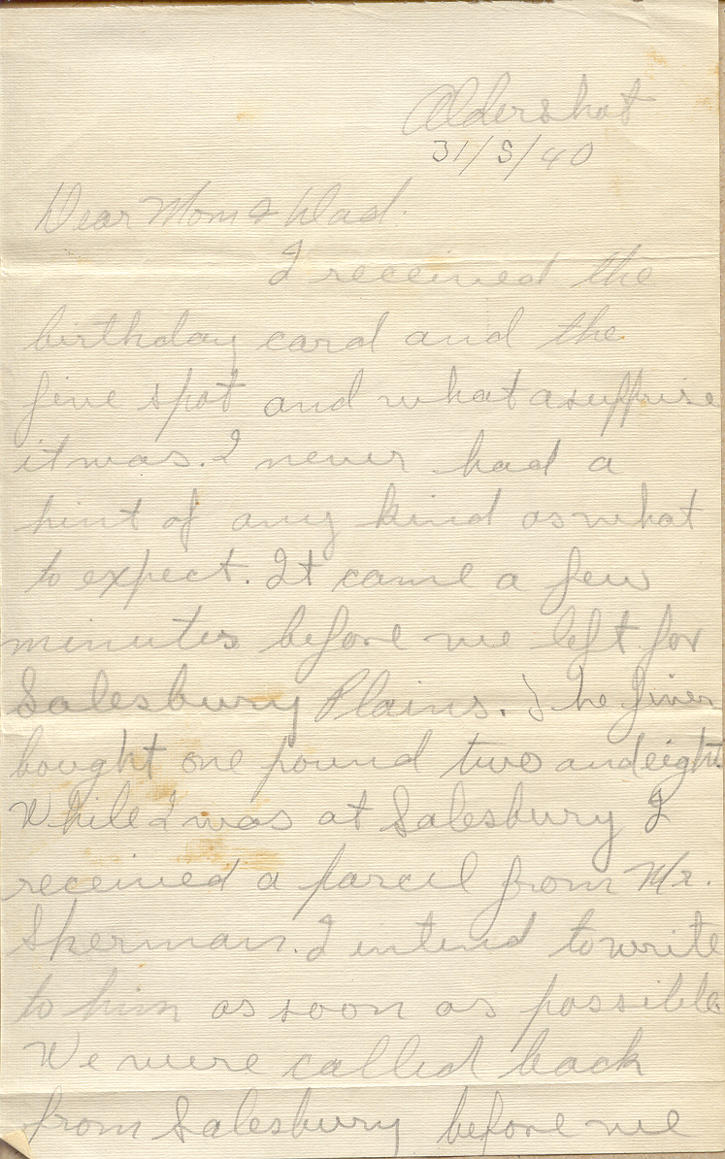 Aldershot
31/5/40
Dear Mom & Dad.
I received the
birthday card and the
five spot and what a surprise
it was. I never had a
hint of any kind as what
to expect. It came a few
minutes before we left for
Salesbury Plains. The fiver
bought one pound two and eight.
While I was at Salesbury I
received a parcel from Mr.
Sherman. I intend to write
to him as soon as possible
We were called back
from Salesbury before we